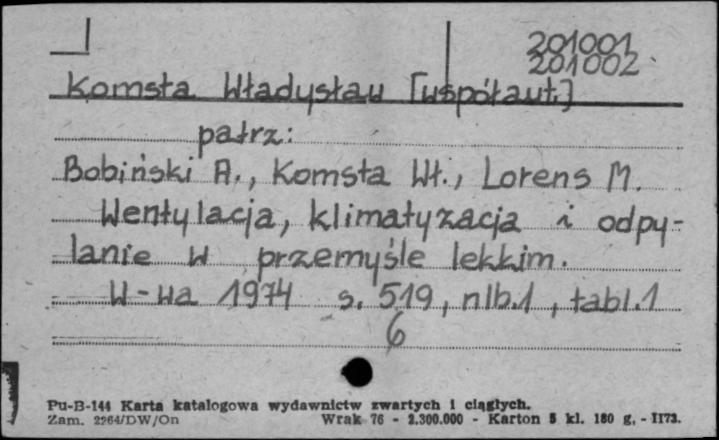 201001
201002
Komsta Władysław [współaut.]
patrz:
Bobiński A., Komsta Wł., Lorens M.
Wentylacja, klimatyzacja i odpy-
lanie w przemyśle lekkim.
W-wa 1974 s. 519, nlb.1, tabl.1
6
Pu-B-144 Karta katalogowa wydawnictw zwartych i ciągłych.
Zam. 2264/DW/On Wrak 76 - 2.300.000 - Karton 5 kl. 180 g. - II73.